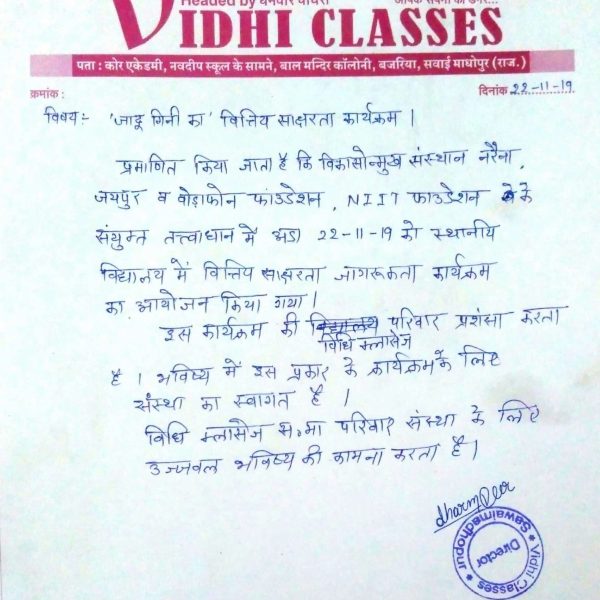 Headed by धर्मवीर चौधरी
आपके सपनों की उड़ान...
VIDHI CLASSES
पता : कोर एकेडमी, नवदीप स्कूल के सामने, बाल मन्दिर कॉलोनी, बजरिया, सवाई माधोपुर (राज.)
क्रमांक :
दिनांक 22-11-19
विषय:- 'जादू गिनी का' वित्तिय साक्षरता कार्यक्रम ।
प्रमाणित किया जाता है कि विकासोन्मुख संस्थान नरैना,
जयपुर व वोडाफोन फांउडेशन, NIIT फाउडेशन के
संयुक्त तत्त्वाधान में 22-11-19 को स्थानीय
विद्यालय में वित्तिय साक्षरता जागरूकता कार्यक्रम
का आयोजन किया गया ।
इस कार्यक्रम की विद्यालय परिवार प्रशंसा करता
विधि क्लासेज
है । भविष्य में इस प्रकार के कार्यक्रम के लिए
संस्था का स्वागत है ।
विधि क्लासेज स.मा परिवार संस्था के लिए
उज्जवल भविष्य की कामना करता है ।
dharmveer
Vidhi Classes
Director
Sawaimadhopur